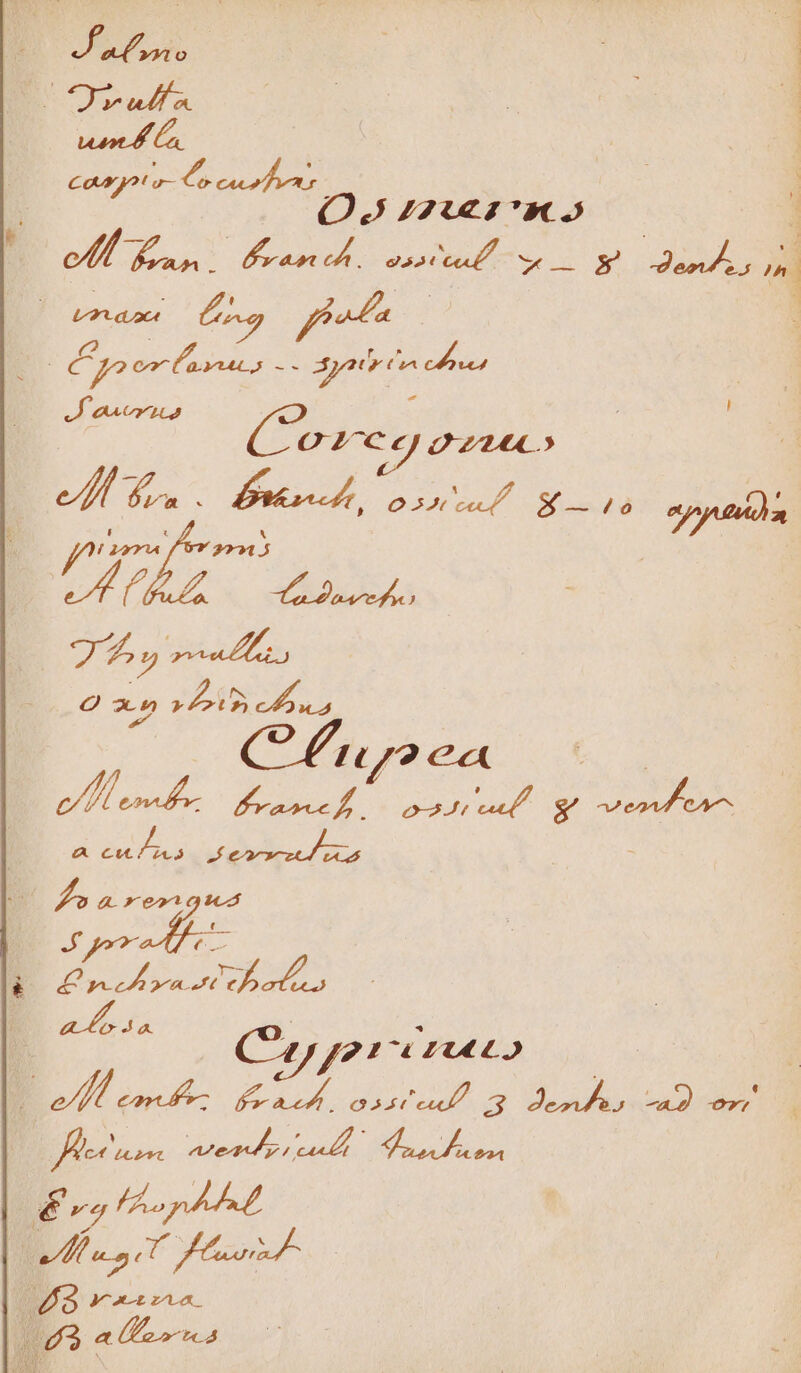 Salmo
Trutta
umbla
carpio lacustris
Osmerus
Mbran. branch. ossicul 7 – 8 dentes in
maxi ling pala
Eperlanus -- spirinchus
Saurus
Coregonus
Mbra. branch, ossicul 8 – 10 appendix
pinniformis
Albula Lavaretus
Thymallus
oxyrhinchus
Clupea
Membr. branch. ossicul 8 venter
acutus serratus
harengus
Spratti
Enchrasicholus
alosa
Cyprinus
Membr. brach. ossicul 3 dentes ad ori
ficium ventriculi tantum
Erythophtal
Mugil fluviat
Brama
Ballerus